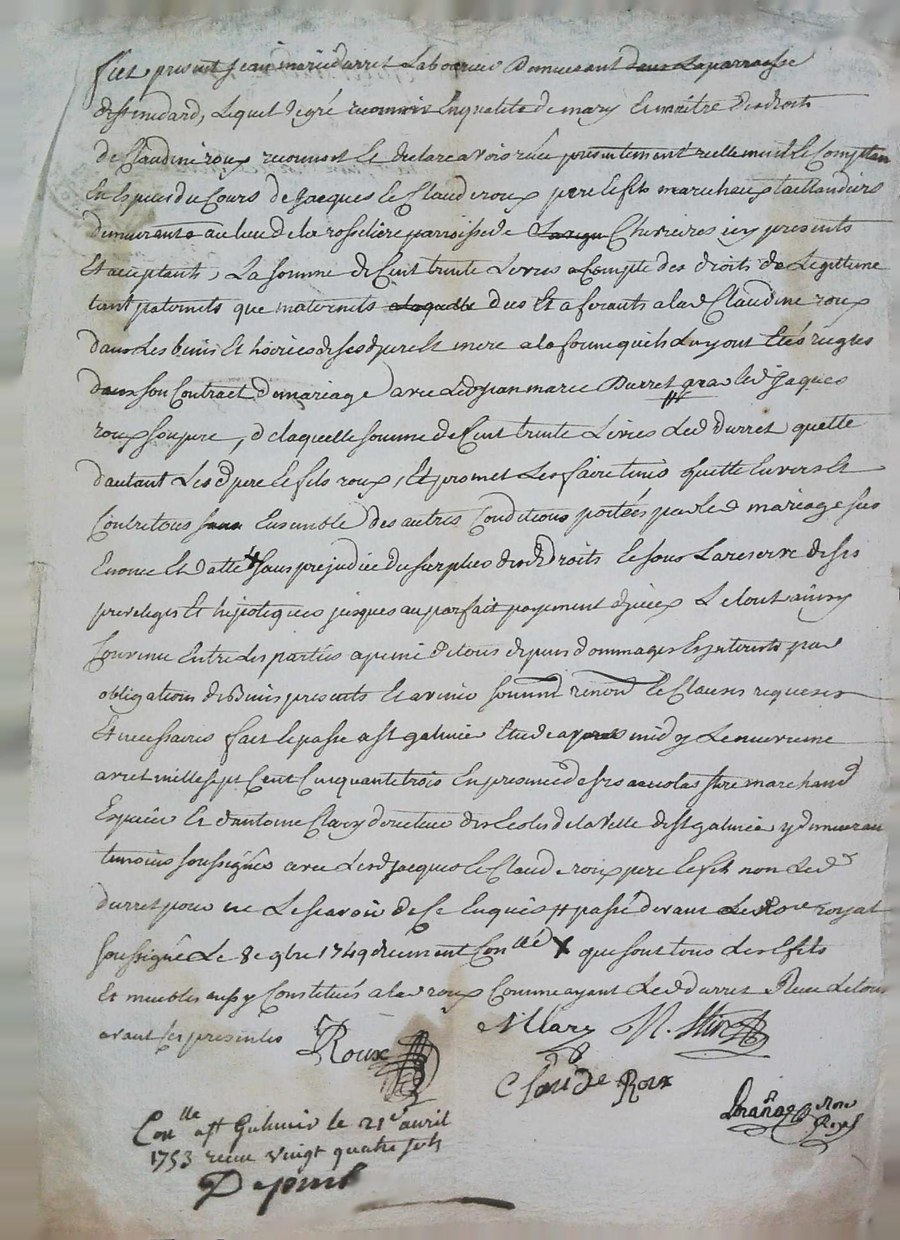 fut present Jean marie durret Laboureur Demeurant dans Laparroisse
destmedard, Lequel degré reconnoit En qualité de mary Et maitre des droits
de Claudine roux reconnoit Et declare avoir receu presentement reellement Et Comptan
En Especes du Cours de Jacques Et Claude roux pere Et fils marechaux taillandiers
demeurants au lieu de la rosseliere parroisse de Chevrieres icy presents
Et acceptants, La somme de Cent trente Livres a Compte des droits de Legitime
tant paternels que maternels a laquelle dus Et aferants a lad Claudine roux
dans Les biens Et hoiries de sesd pere Et mere a la somme quils Luy ont Etés regles
dans son Contract de mariage avec Led Jean marie Durret par led Jaques
roux son pere, de laquelle somme de Cent trente Livres Led durret quitte
dautant Lesd pere Et fils roux, Et promet Les faire tenir quitte Envers Et
Contre tous Ensemble des autres Conditions portées par Led mariage sus
Enoncé Et datté sans prejudice du surplus desd droits Et sous La reserve de ses
privileges Et hipoteques jusques au parfait payement diceux Le tout ainsy
Convenu Entre Les parties a peine de tous depens dommages Et interests par
obligations de biens presents Et avenir soumiss renonc Et Clauses requises
Et necessaires fait Et passé a st galmier Etude apres midy Le neuvieme
avril mille sept Cent Cinquante trois En presence de srs nicolas marchand
Epicier Et dantoine Clary directeur des Ecoles de la ville de st galmier y demeuran
temoins soussignés avec Lesd Jacques Et Claude roux pere Et fils non Led
durret pour ne Le scavoir de Ce Enquis # passé devant Le No.re royal
soussigné Le 8e 9bre 1749 duement Con.llé X que sont tous Les Effets
Et meubles aussy Constitués a lad roux Comme ayant Led durret Receu Le tout
avant Ces presentes Roux Clary N.
Claude Roux
nore
Royal
Con.lle a st Galmier le 21e avril
1753 receu vingt quatre sols